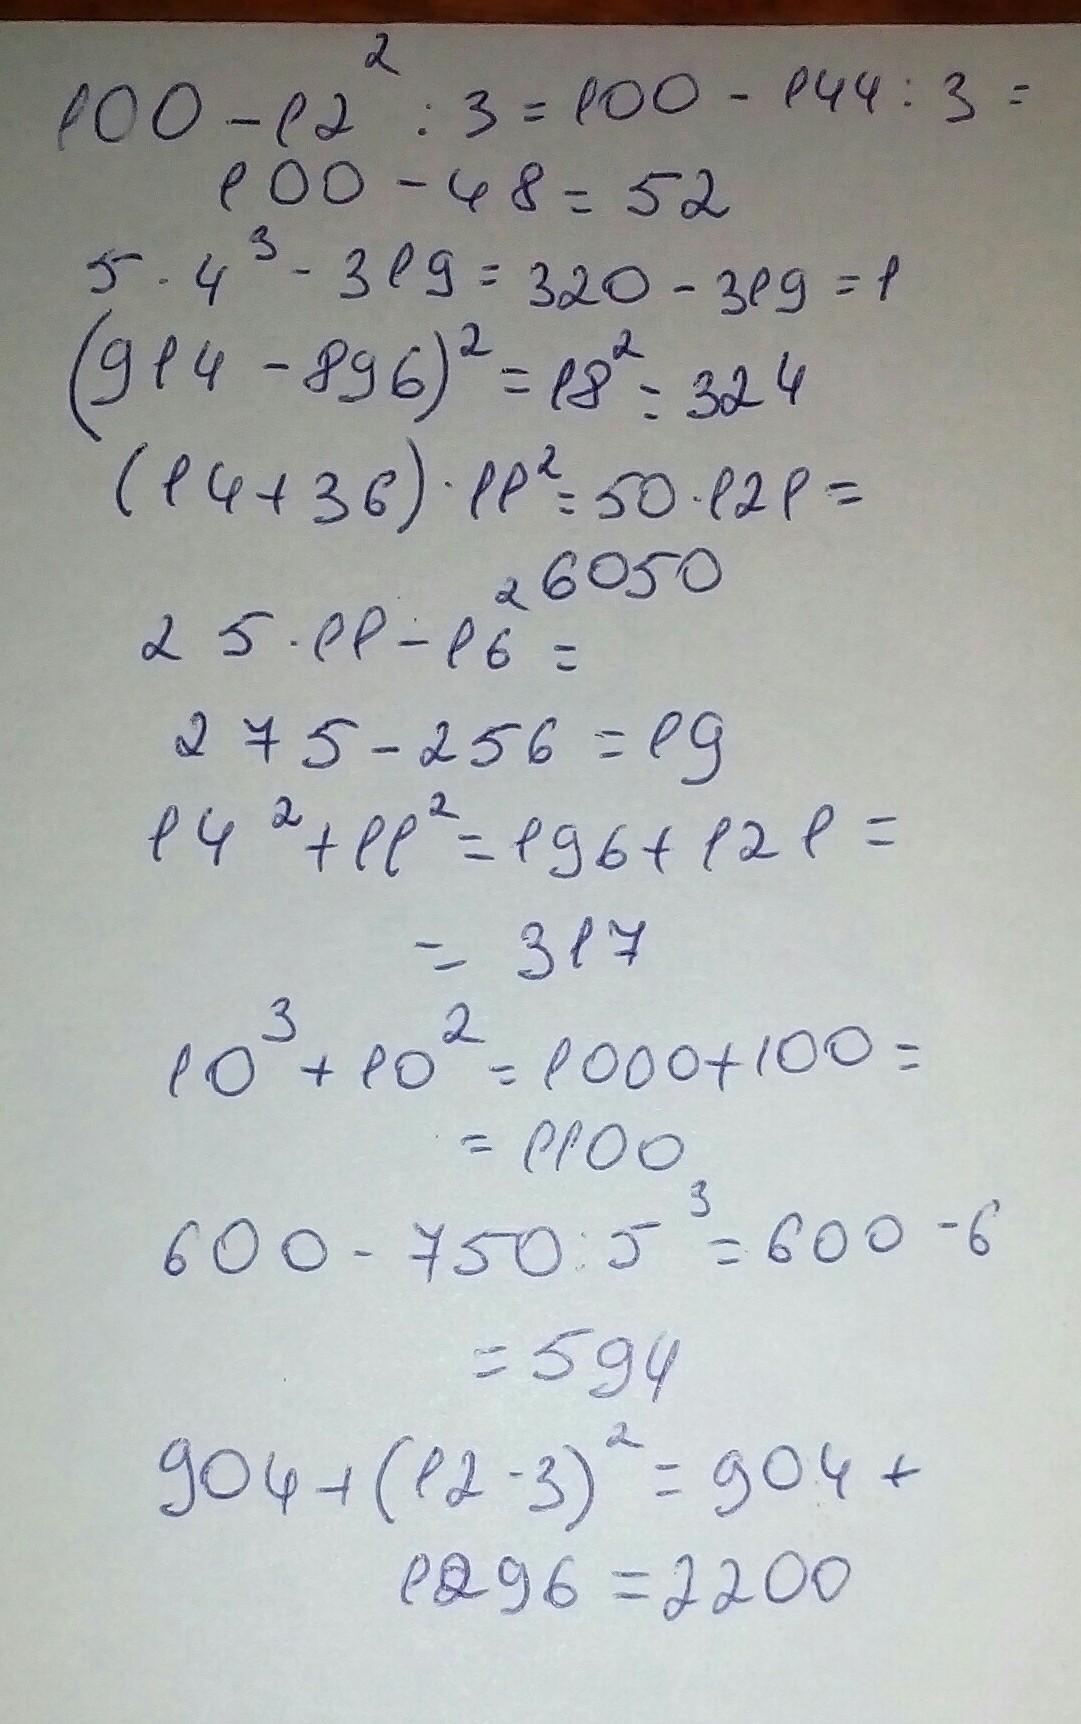 100 - 12² : 3 = 100 - 144 : 3 =
100 - 48 = 52
5 · 4³ - 319 = 320 - 319 = 1
(914 - 896)² = 18² = 324
(14 + 36) · 11² = 50 · 121 =
6050
25 · 11 - 16² =
275 - 256 = 19
14² + 11² = 196 + 121 =
= 317
10³ + 10² = 1000 + 100 =
= 1100
600 - 750 : 5³ = 600 - 6
= 594
904 + (12 · 3)² = 904 +
1296 = 2200